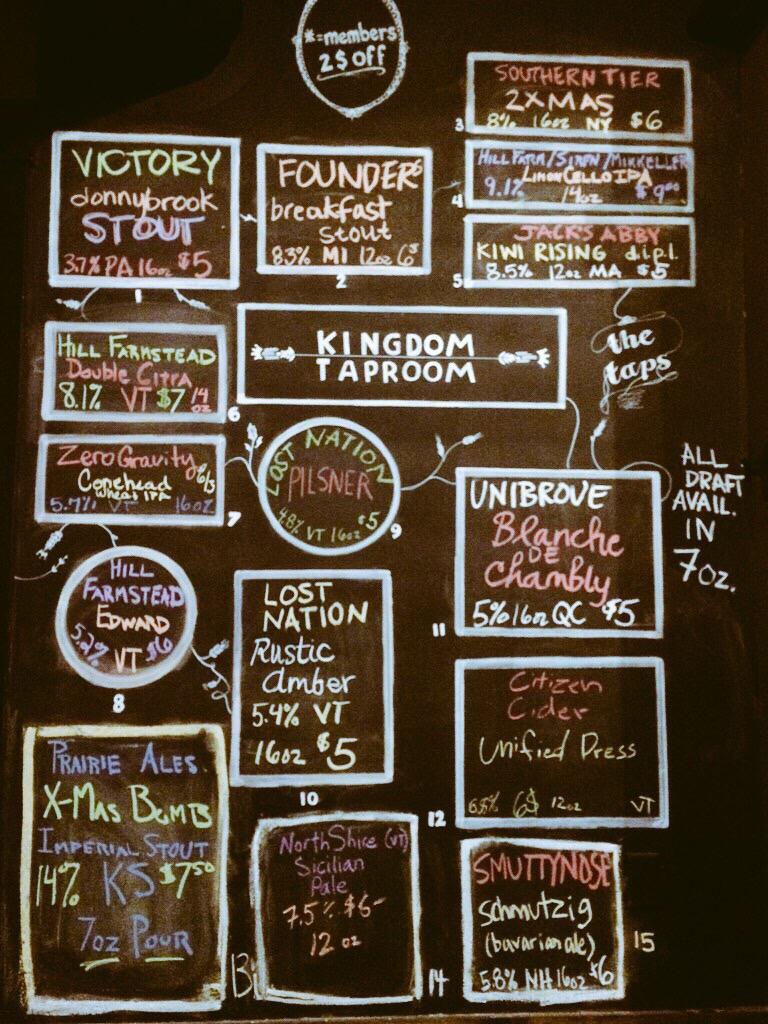 *=members
2$ off
SOUTHERN TIER
2XMAS
8% 16oz NY $6
3
VICTORY
donnybrook
STOUT
3.7% PA 16oz $5
1
FOUNDERS
breakfast
stout
8.3% MI 12oz 6$
2
HILL FARM/SIREN/MIKKELLER
LIMONCELLO IPA
9.1% 14oz $9.00
4
JACK'S ABBY
KIWI RISING d.i.p.l.
8.5% 12oz MA $5
5
KINGDOM
TAPROOM
the
taps
HILL FARMSTEAD
Double Citra
8.1% VT $7 14
oz
6
Zero Gravity
Conehead
Wheat IPA
5.7% VT 16oz
7
LOST NATION
PILSNER
4.8% VT 16oz $5
9
ALL
DRAFT
AVAIL.
IN
7oz.
UNIBROVE
Blanche
DE
Chambly
5% 16oz QC $5
11
HILL
FARMSTEAD
EDWARD
5.2% $6
VT
8
LOST
NATION
Rustic
amber
5.4% VT
16oz $5
10
Citizen
Cider
Unified Press
6$ 12oz VT
12
PRAIRIE ALES.
X-MAS BOMB
IMPERIAL STOUT
14% KS $7.50
7oz POUR
NorthShire (VT)
Sicilian
Pale
7.5% $6-
12 oz
14
SMUTTYNOSE
schmutzig
(bavarian ale)
5.8% NH 16oz $6
15